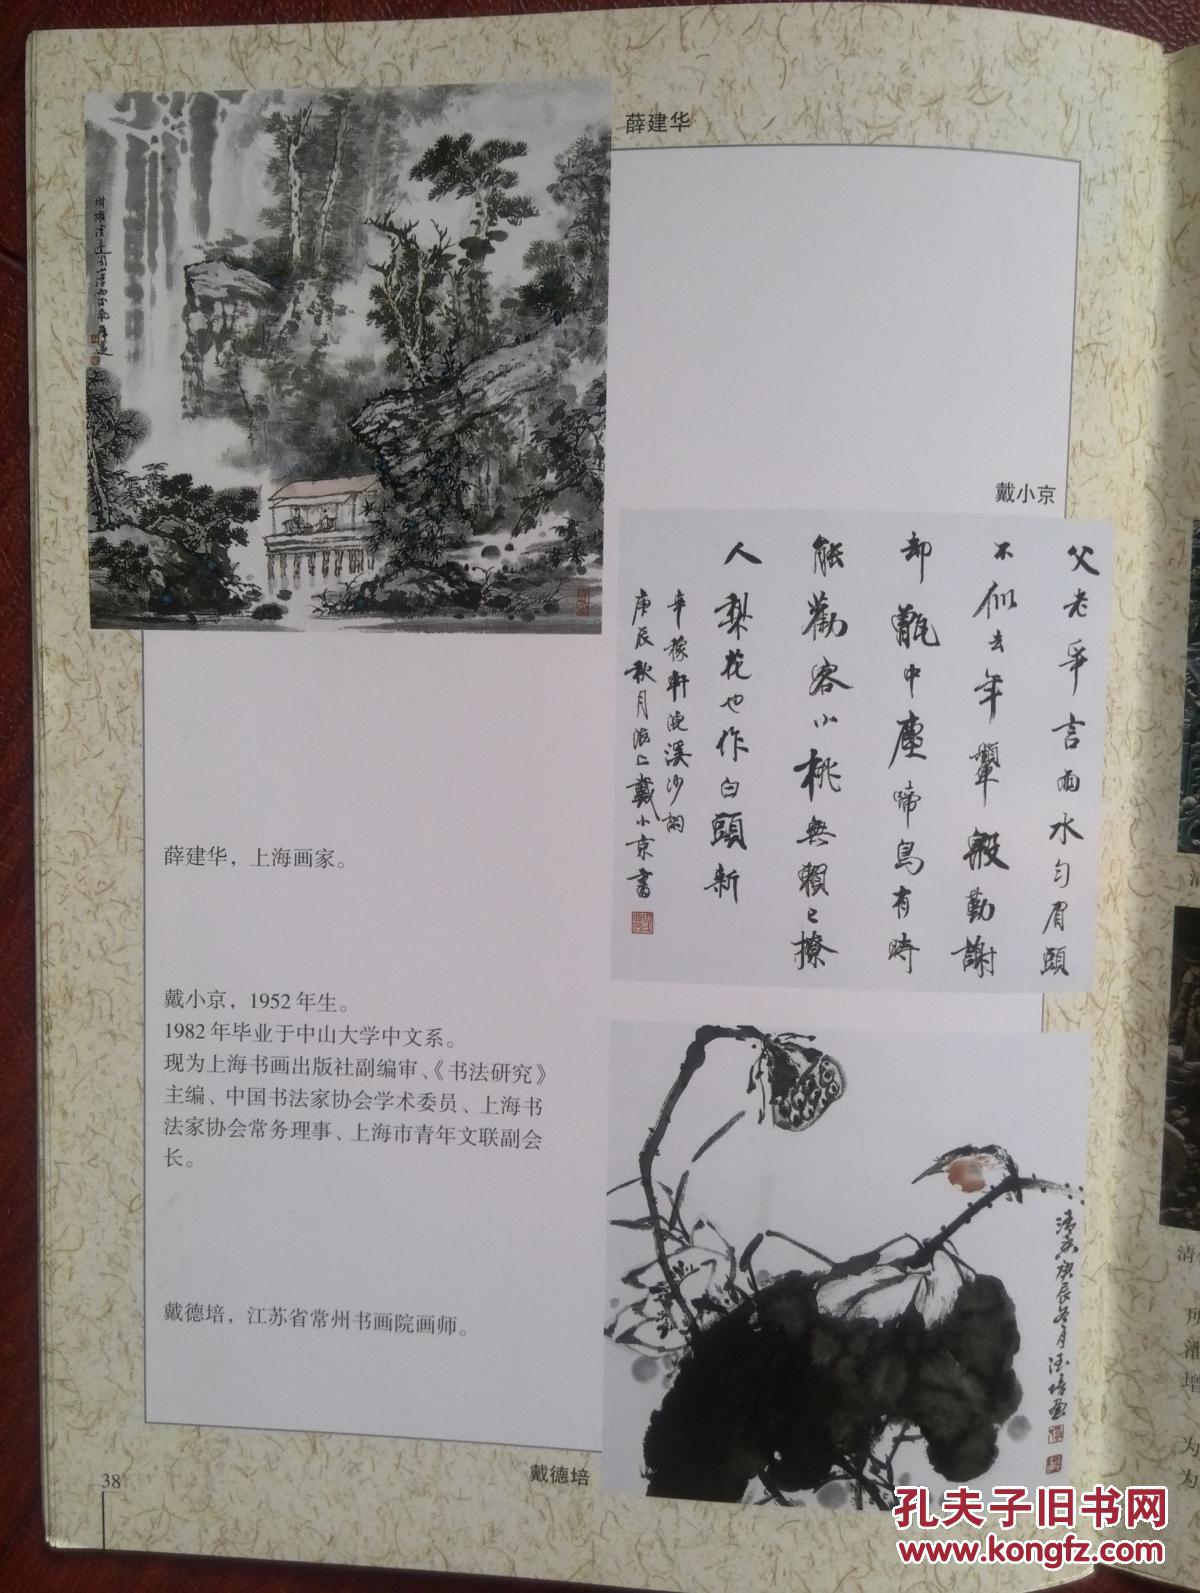 薛建华
戴小京
父老争言雨水匀眉頭
不似去年颦殷勤謝
却甑中塵啼鳥有時
能勸客小桃無賴已撩
人梨花也作白頭新
辛稼軒浣溪沙詞
庚辰秋月
戴小京書
薛建华，上海画家。
戴小京，1952年生。
1982年毕业于中山大学中文系。
现为上海书画出版社副编审、《书法研究》
主编、中国书法家协会学术委员、上海书
法家协会常务理事、上海市青年文联副会
长。
清香庚辰冬月德培画
戴德培，江苏省常州书画院画师。
戴德培
38
孔夫子旧书网
www.kongfz.com
清
所
潘
增
为
为